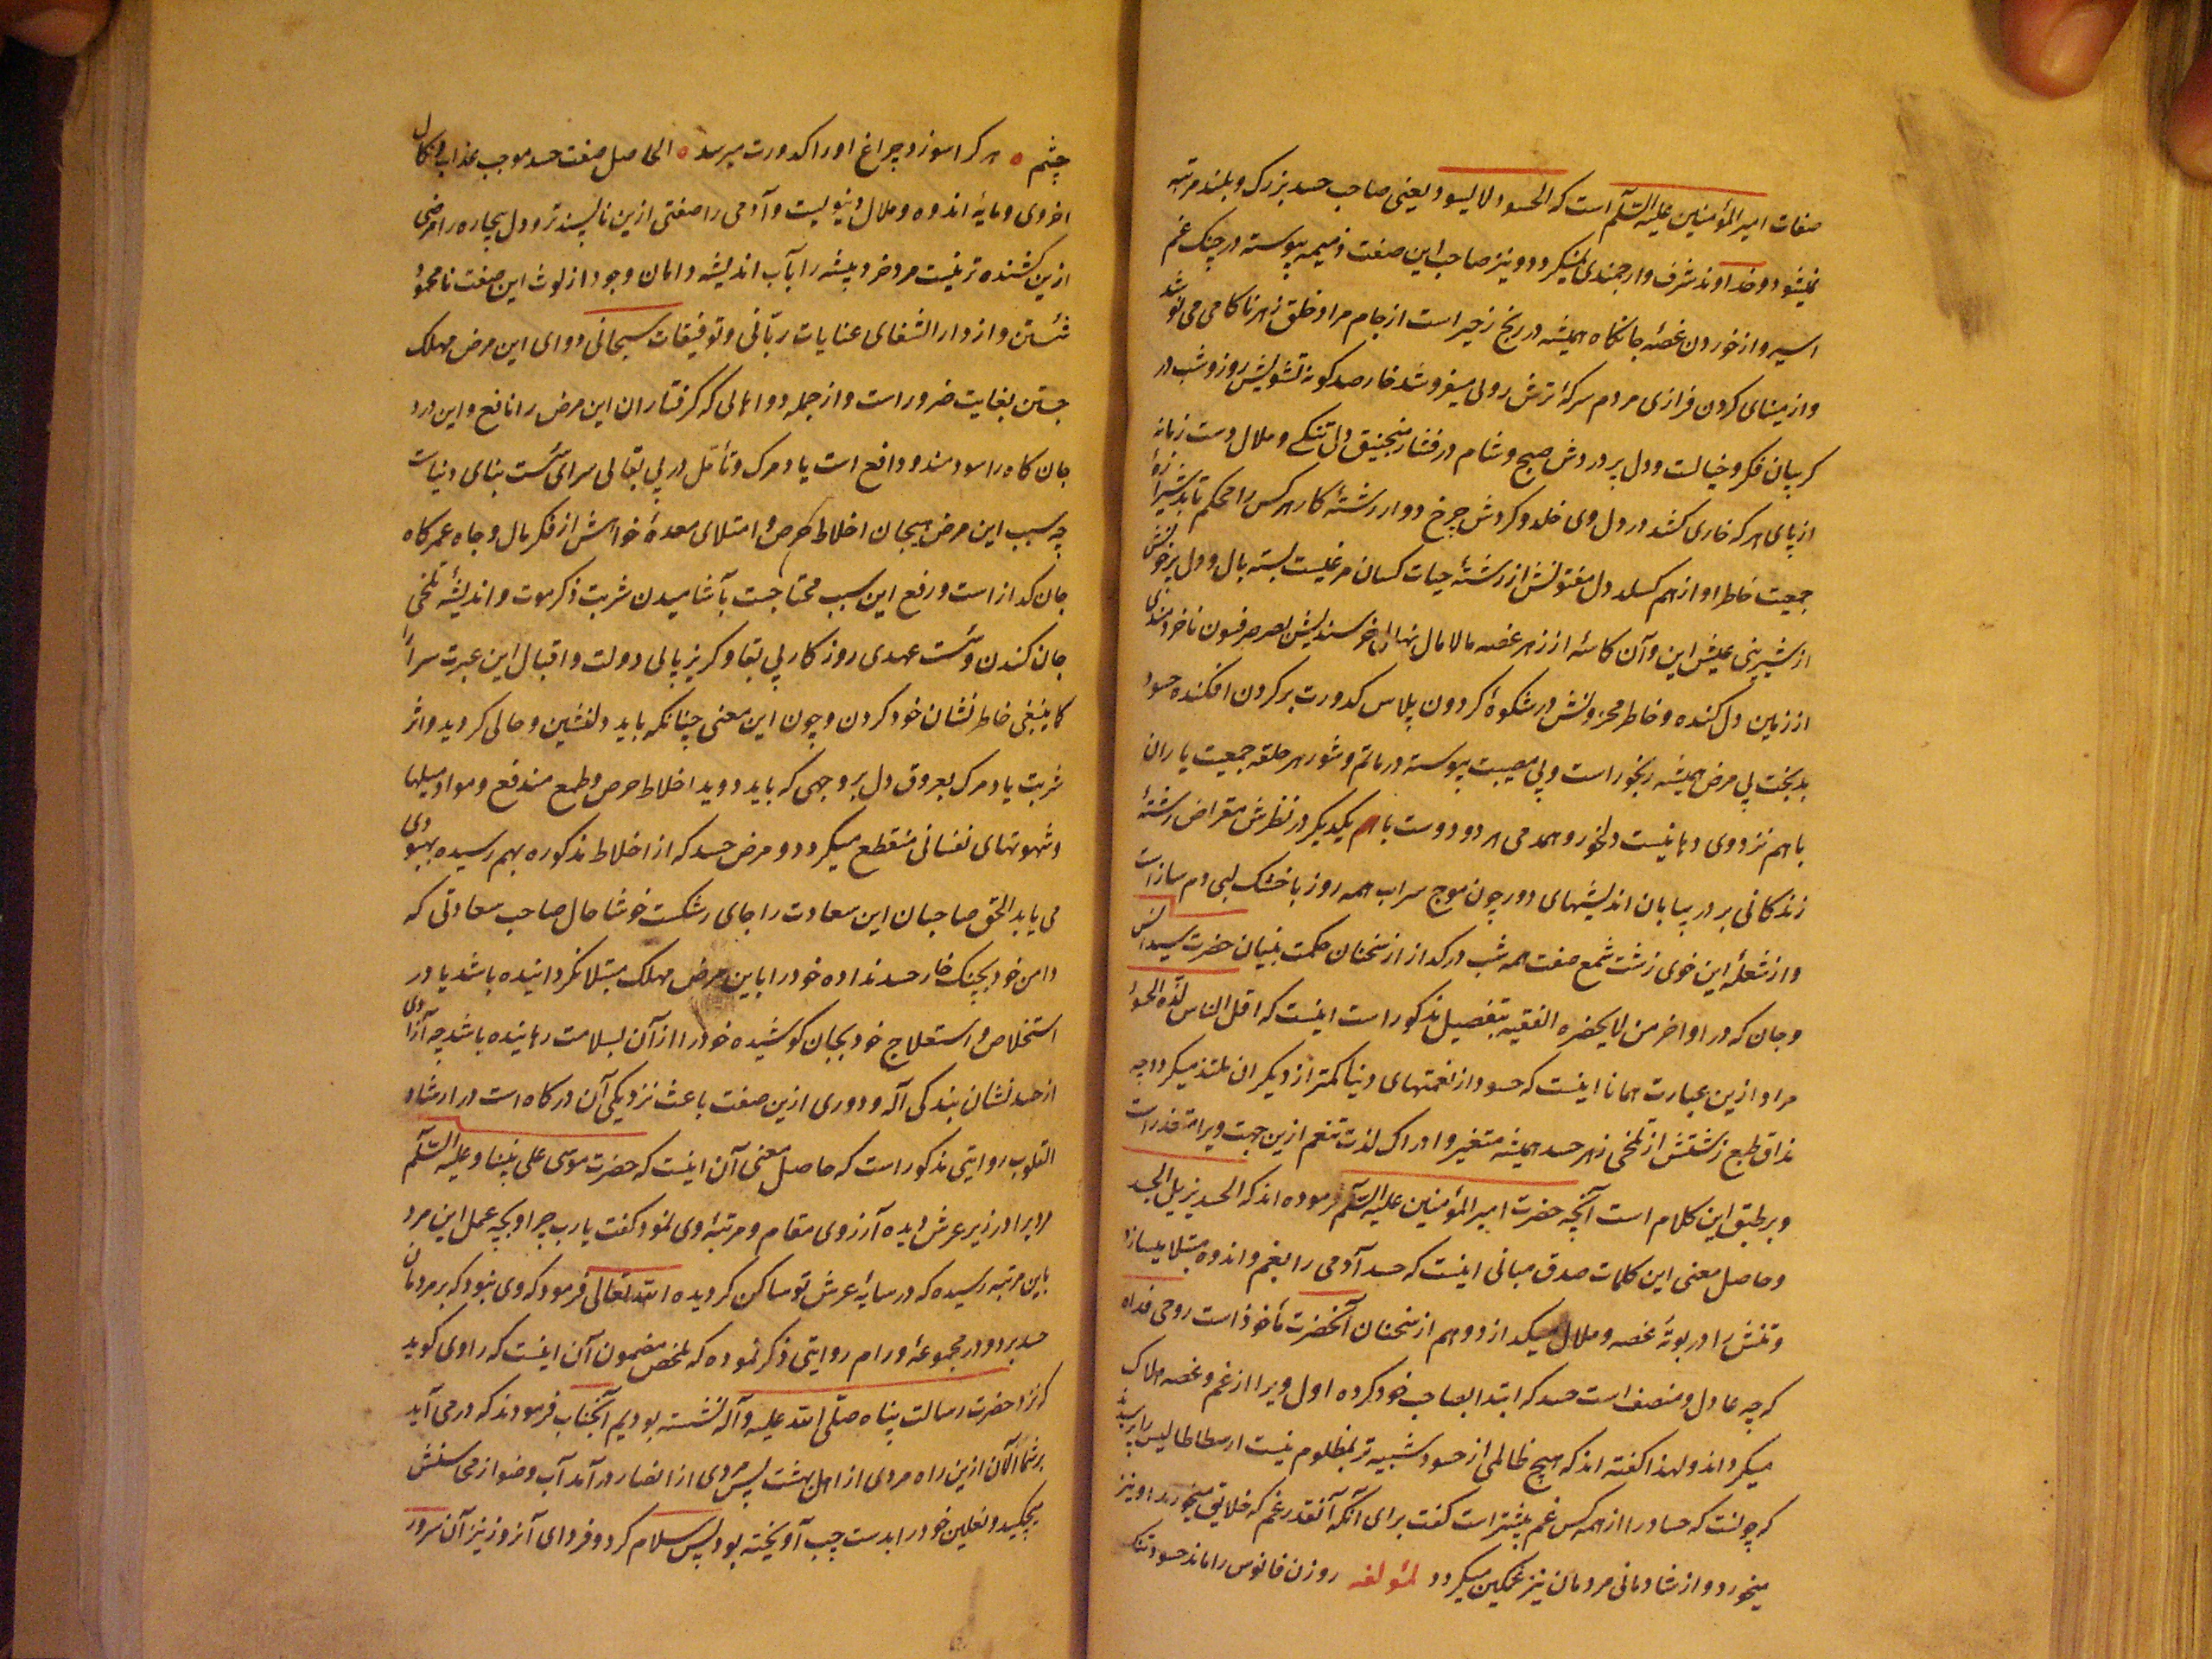 صفات امیر المؤمنین علیه السّلام است که الحسود لا یسود یعنی صاحب حسد بزرک و بلند مرتبه
نمیشود و خداوند شرف و ارجمندی نمیکردد و نیز صاحب این صفت ذمیمه پیوسته در چنک غم
اسیر و از خوردن غصهٔ جانکاه همیشه در رنج زحیر است از جام مراد خلق زهر ناکامی می نوشد
و از مینای کردن فرازی مردم سرکهٔ ترش رویی میفروشد خار صد کونه تشویش روز و شب در
کریبان فکر و خیالت و دل پر دردش صبح و شام در فشار منجنیق دل تنکی و ملال دست زمانه
از پای هر که خاری کشد در دل وی خلد و کردش چرخ دوار رشتهٔ کار هر کس را محکم تابد شیرازهٔ
جمعیت خاطر او از هم کسلد دل مفتونش از رشتهٔ حیات کسان مرغیست بسته بال و دل پر خونش
از شیرینی عیش این و آن کاسهٔ از زهر غصه مالامال نهال خرسندیش بصرصر فسون ناخردمندی
از زمین دل کنده و خاطر محزونش در شکوهٔ کردون پلاس کدورت بر کردن افکنده حسود
بدبخت بی مرض همیشه رنجور است و بی مصیبت پیوسته در ماتم و شور هر حلقه جمعیت یاران
با هم نزد وی دهانیست دلخور و همدمی هر دو دوست با هم یکدیکر در نظرش مقراض رشتهٔ
زندکانی بر در بیابان اندیشهای دور چون موج سراب همه روز با خشک لبی دم ساز است
و از شعلهٔ این خوی زشت شمع صفت همه شب در کداز از سخنان حکمت بنیان حضرت سید انس
و جان که در اواخر من لا یحضره الفقیه بتفصیل مذکور است اینست که اقل الناس لذّة الحسود
مراد ازین عبارت همانا اینست که حسود از نعمتهای دنیا کمتر از دیکران ملتذ میکردد چه
مذاق طبع زشتش از تلخی زهر حسد همیشه متغیر و ادراک لذت تنعم ازین جهت ویرا متعذر است
و بر طبق این کلام است آنچه حضرت امیر المؤمنین علیه السّلام فرموده اند که الحسد یزیل الجسد
و حاصل معنی این کلمات صدق مبانی اینست که حسد آدمی را بغم و اندوه مبتلا میسازد
و تنش را در بوتهٔ غصه و ملال میکدازد و هم از سخنان آنحضرت مأخوذ است روحی فداه
که چه عادل و منصف است حسد که ابتدا بصاحب خود کرده اول ویرا از غم و غصه هلاک
میکرداند و لهذا کفته اند که هیچ ظالمی از حسود شبیه تر بمظلوم نیست ارسطاطالیس را پرسیدند
که چونست که حسادرا از همه کس غم بیشتر است کفت برای آنکه آنقدر غم که خلایق میخورند او نیز
میخورد و از شادمانی مردمان نیز غمکین میکردد لمؤلفه روزن فانوس را ماند حسود تنک
چشم ه هر کرا سوزد چراغ او را کدورت میرسد ه الحاصل صفت حسد موجب عذاب و نکال
اخروی و مایهٔ اندوه و ملال دنیویست و آدمی را صفتی ازین ناپسندتر و دل بیچاره را مرضی
ازین کشنده تر نیست مرد خرد پیشه را بآب اندیشه دامان وجود از لوث این صفت نامحمود
شستن و از دار الشفای عنایات ربّانی و توفیقات سبحانی دوای این مرض مهلک
جستن بغایت ضرور است و از جمله دواهائی که کرفتاران این مرض را نافع و این درد
جان کاه را سودمند و دافع است یاد مرک و تأمّل در بی بقائی سرای سست بنای دنیاست
چه سبب این مرض هیجان اخلاط حرص و امتلای معدهٔ خواهش از فکر مال و جاه عمر کاه
جان کداز است و رفع این سبب محتاجست بآشامیدن شربت ذکر موت و اندیشهٔ تلخی
جان کندن و سست عهدی روزکار بی بقا و کریز پائی دولت و اقبال این عبرت سرا را
کما ینبغی خاطر نشان خود کردن و چون این معنی چنانکه باید دلنشین و حالی کردید و اثر
شربت یاد مرک بعروق دل بروجهی که باید دوید اخلاط حرص و طمع مندفع و مواد میلها
و شهوتهای نفسانی منقطع میکردد و مرض حسد که از اخلاط مذکوره بهم رسیده بهبودی
می یابد الحق صاحبان این سعادت را جای رشکست خوشا حال صاحب سعادتی که
دامن خود بچنک خار حسد نداده خود را باین مرض مهلک مبتلا نکردانیده باشد یا در
استخلاص و استعلاج خود بجان کوشیده خود را از آن بسلامت رهانیده باشد چه آزادی
از حسد نشان بندکی آله و دوری ازین صفت باعث نزدیکی آن درکاه است در ارشاد
القلوب روایتی مذکور است که حاصل معنی آن اینست که حضرت موسی علی نبینا و علیه السّلام
مردیرا در زیر عرش دیده آرزوی مقام و مرتبهٔ وی نمود کفت یا رب چرا و بچه عمل این مرد
باین مرتبه رسیده که در سایهٔ عرش تو ساکن کردیده الله تعالی فرمود که وی نبود که بر مردمان
حسد برد و در مجموعهٔ ورام روایتی ذکر نموده که ملخص مضمون آن اینست که راوی کوید
که نزد حضرت رسالت پناه صلّی الله علیه و آله نشسته بودیم آنجناب فرمودند که در می آید
بر شما الآن ازین راه مردی از اهل بهشت پس مردی از انصار در آمد آب وضو از محاسنش
میچکید و نعلین خود را بدست چپ آویخته بود پس سلام کرد و فردای آنروز نیز آن سرور